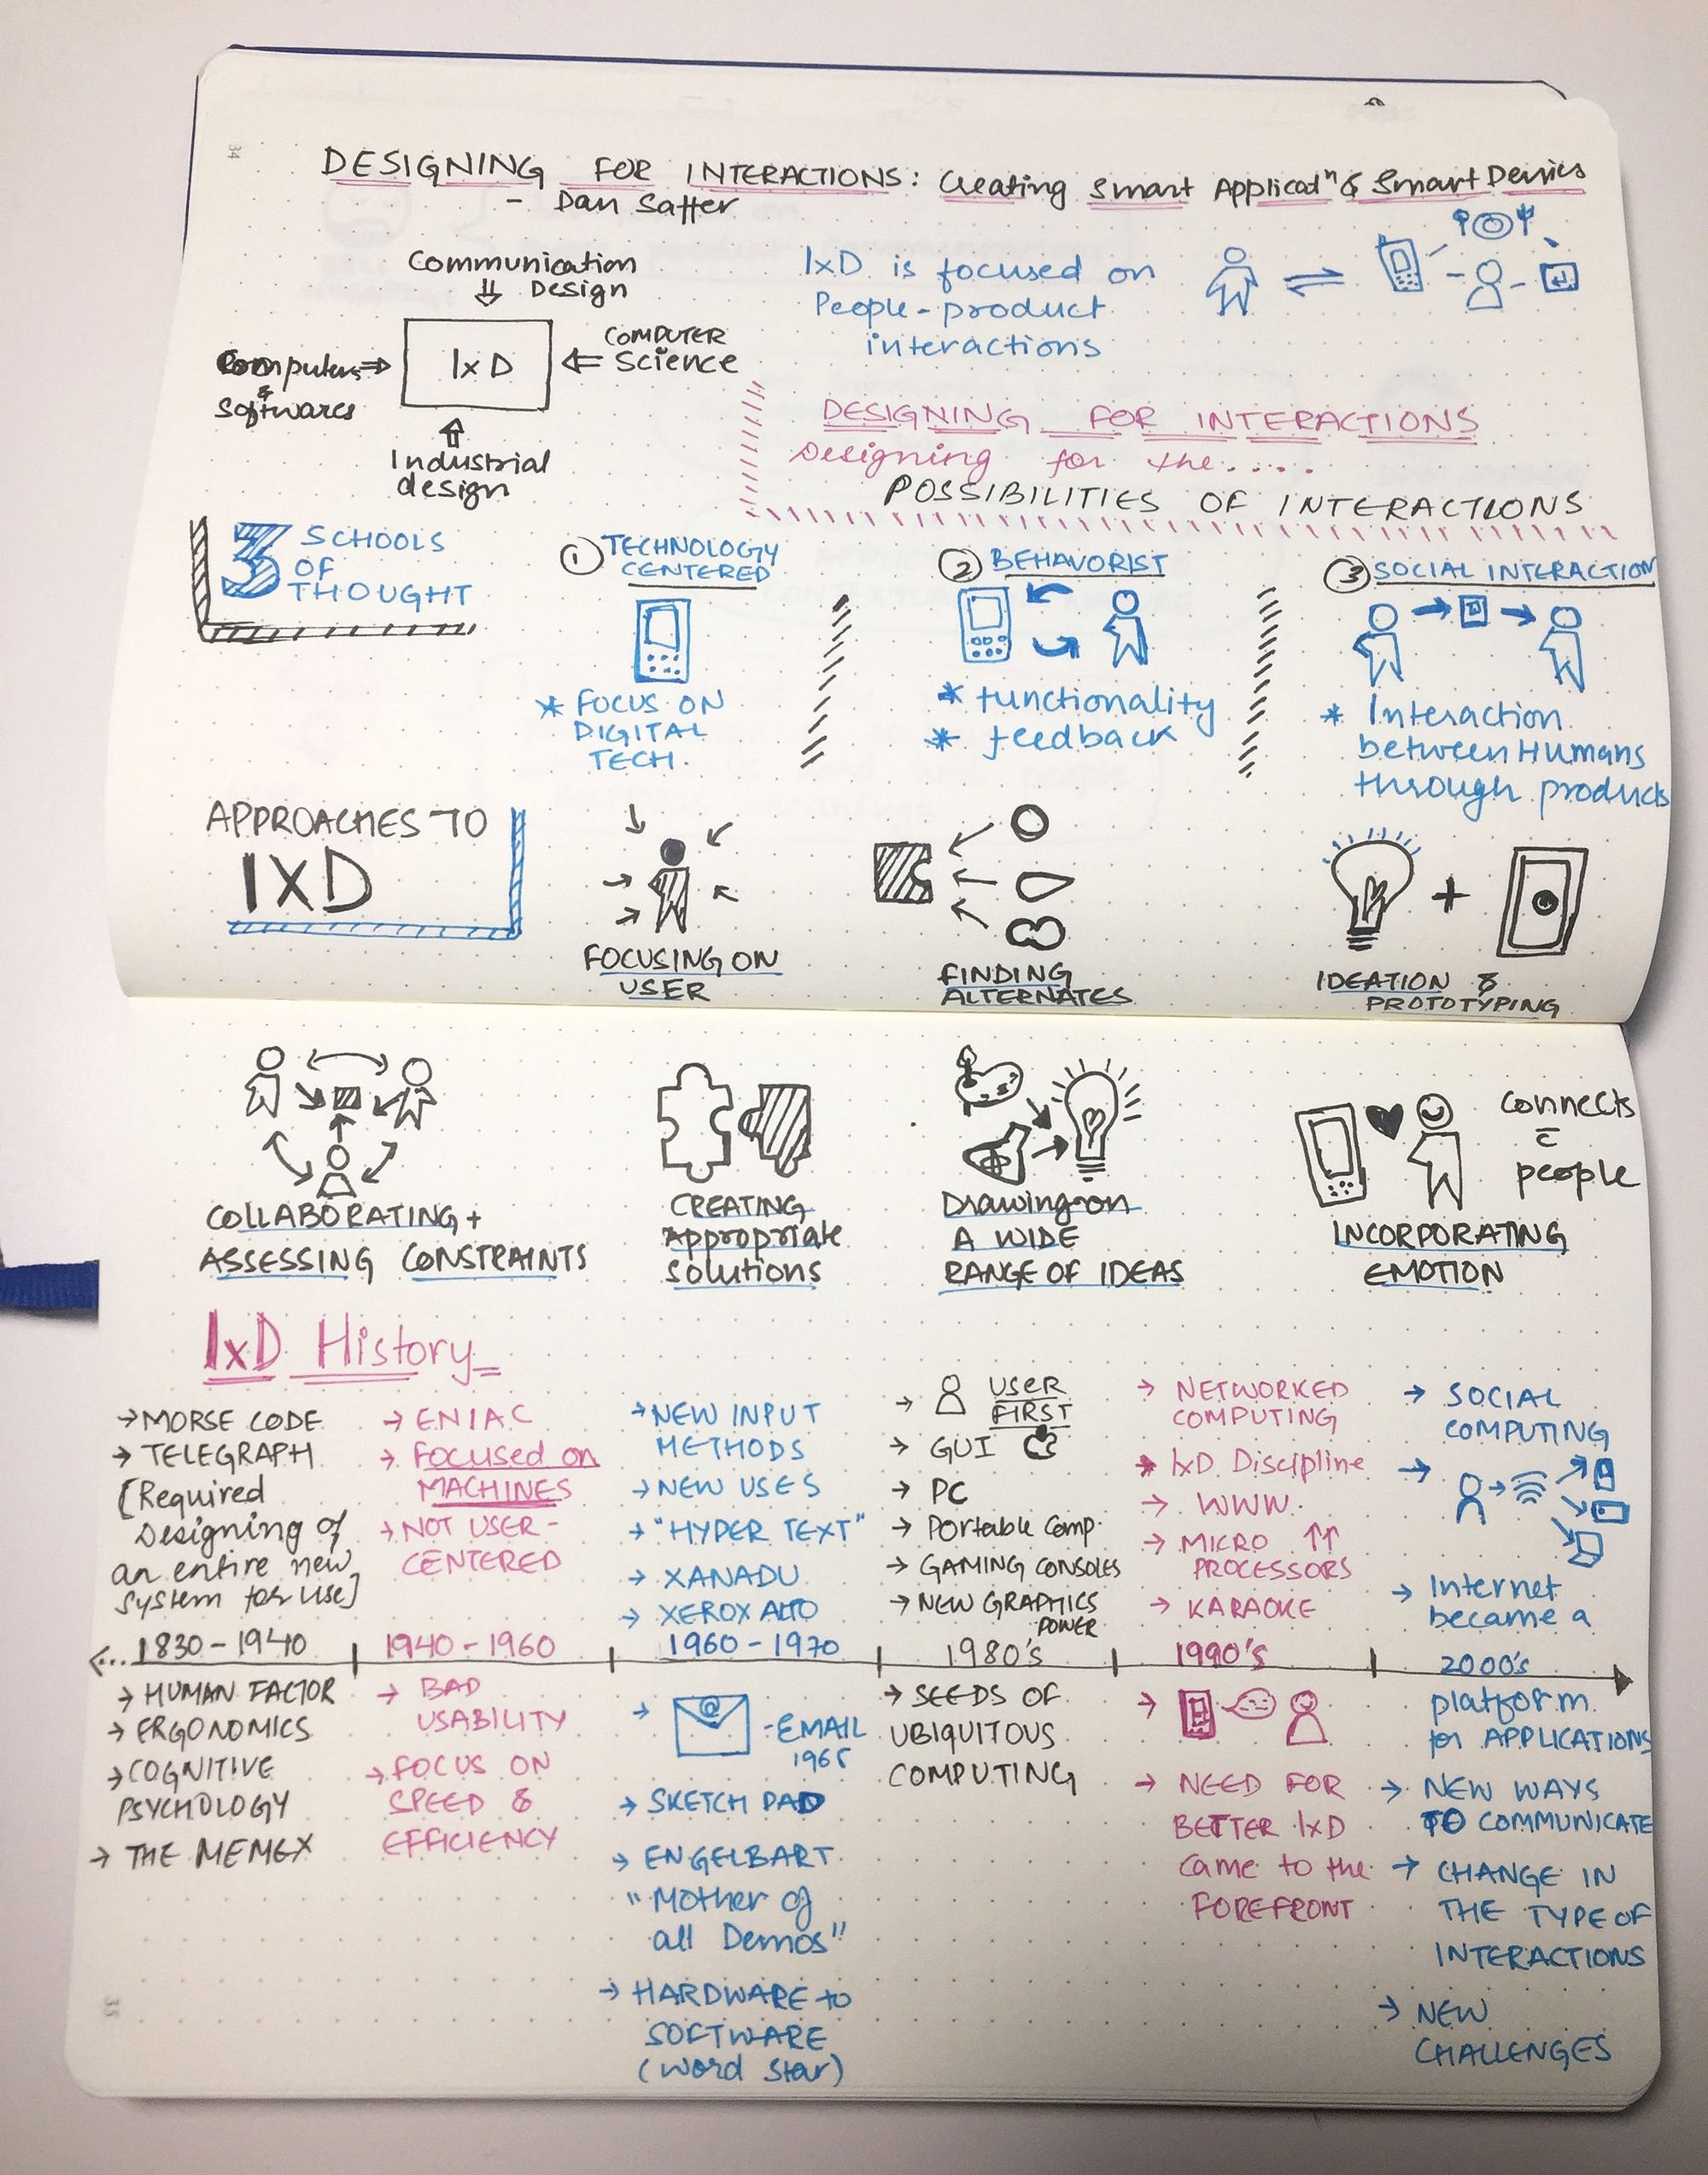 34
DESIGNING FOR INTERACTIONS: Creating Smart Applicatⁿ & Smart Devices
- Dan Saffer
Communication
Design
Computers
&
Softwares
IxD
COMPUTER
Science
Industrial
design
IxD is focused on
People-product
interactions
DESIGNING FOR INTERACTIONS
Designing for the.....
POSSIBILITIES OF INTERACTIONS
3 SCHOOLS
OF
THOUGHT
① TECHNOLOGY
CENTERED
* FOCUS ON
DIGITAL
TECH.
② BEHAVORIST
* functionality
* feedback
③ SOCIAL INTERACTION
* Interaction
between Humans
through products
APPROACHES TO
IXD
FOCUSING ON
USER
FINDING
ALTERNATES
+
IDEATION &
PROTOTYPING
COLLABORATING +
ASSESSING CONSTRAINTS
CREATING
Appropriate
solutions
Drawing on
A WIDE
RANGE OF IDEAS
connects
c̄
people
INCORPORATING
EMOTION
IxD History
→ MORSE CODE
→ TELEGRAPH
[Required
Designing of
an entire new
system for use]
1830 - 1940
→ HUMAN FACTOR
→ ERGONOMICS
→ COGNITIVE
PSYCHOLOGY
→ THE MEMEX
→ ENIAC
→ Focused on
MACHINES
→ NOT USER-
CENTERED
1940 - 1960
→ BAD
USABILITY
→ FOCUS ON
SPEED &
EFFICIENCY
→ NEW INPUT
METHODS
→ NEW USES
→ "HYPER TEXT"
→ XANADU
→ XEROX ALTO
1960 - 1970
→ @ - EMAIL
1965
→ SKETCH PAD
→ ENGELBART
"Mother of
all Demos"
→ HARDWARE to
SOFTWARE
(Word Star)
→ USER
FIRST
→ GUI
→ PC
→ Portable Comp.
→ GAMING CONSOLES
→ NEW GRAPHICS
POWER
1980's
→ SEEDS OF
UBIQUITOUS
COMPUTING
→ NETWORKED
COMPUTING
* IxD Discipline
→ WWW.
→ MICRO ↑↑
PROCESSORS
→ KARAOKE
1990's
→ NEED FOR
BETTER IxD
came to the
FOREFRONT
→ SOCIAL
COMPUTING
→ Internet
became a
2000's
platform
for APPLICATIONS
→ NEW WAYS
TO COMMUNICATE
→ CHANGE IN
THE TYPE OF
INTERACTIONS
→ NEW
CHALLENGES
35